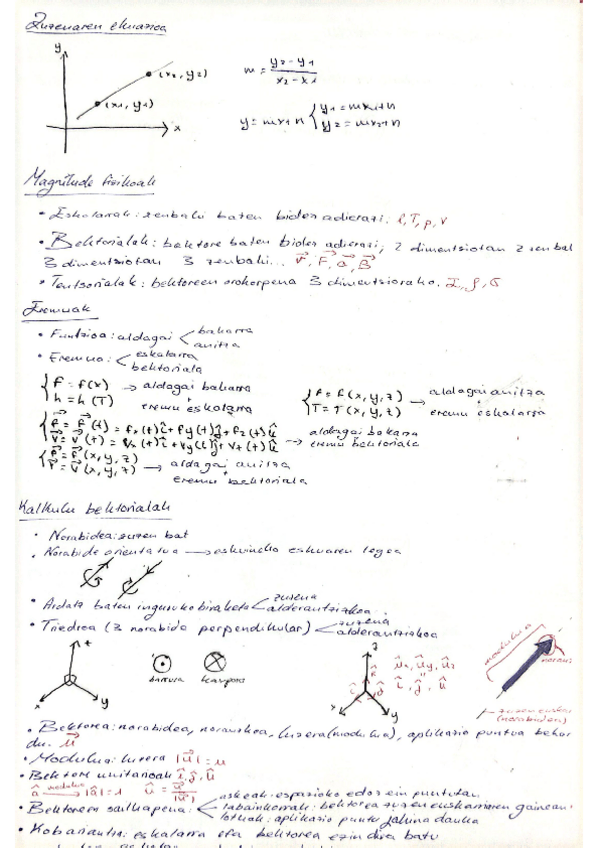 Zuzenaren ekuazioa
y
(x₂, y₂)
(x₁, y₁)
x
m = (y₂ - y₁) / (x₂ - x₁)
y = mx + n { y₁ = mx₁ + n
y₂ = mx₂ + n
Magnitude fisikoak
• Eskalarrak: zenbaki baten bidez adierazi. l, T, p, V
• Bektorialak: bektore baten bidez adierazi; 2 dimentsiotan 2 zenbaki
3 dimentsiotan 3 zenbaki... v⃗, F⃗, a⃗, B⃗
• Tentsorialak: bektoreen orokorpena 3 dimentsiorako.
Eremuak
• Funtzioa: aldagai < bakarra
anitza
• Eremua: < eskalarra
bektoriala
{ f = f(x) → aldagai bakarra
h = h(T) + eremu eskalarra
{ f = f(x, y, z) → aldagai anitza
T = T(x, y, z) + eremu eskalarra
{ F⃗ = F⃗(t) = fx(t)î + fy(t)ĵ + fz(t)k̂
v⃗ = v⃗(t) = vx(t)î + vy(t)ĵ + vz(t)k̂ → aldagai bakarra
eremu bektoriala
{ F⃗ = F⃗(x, y, z) → aldagai anitza
v⃗ = v⃗(x, y, z) + eremu bektoriala
Kalkulu bektorialak
• Norabidea: zuzen bat
• Norabide orientatua → eskuineko eskuaren legea
• Ardatz baten inguruko biraketa < zuzena
alderantzizkoa
• Triedroa (3 norabide perpendikular) < zuzena
alderantzizkoa
x y
barrura kanpora
z x y
modulua
• Bektorea: norabidea, noranzkoa, luzera (modulua), aplikazio puntua behar
du. u⃗
• Modulua: luzera |u⃗| = u
• Bektore unitarioak î, ĵ, k̂
modulua |â| = 1
• Bektoreen sailkapena: < askeak: espazioko edozein puntutan
labainkorrak: bektorea zuzen euskarriaren gainean
lotuak: aplikazio puntu jakina dauka
• Kobariantza: eskalarra eta bektorea ezin dira batu